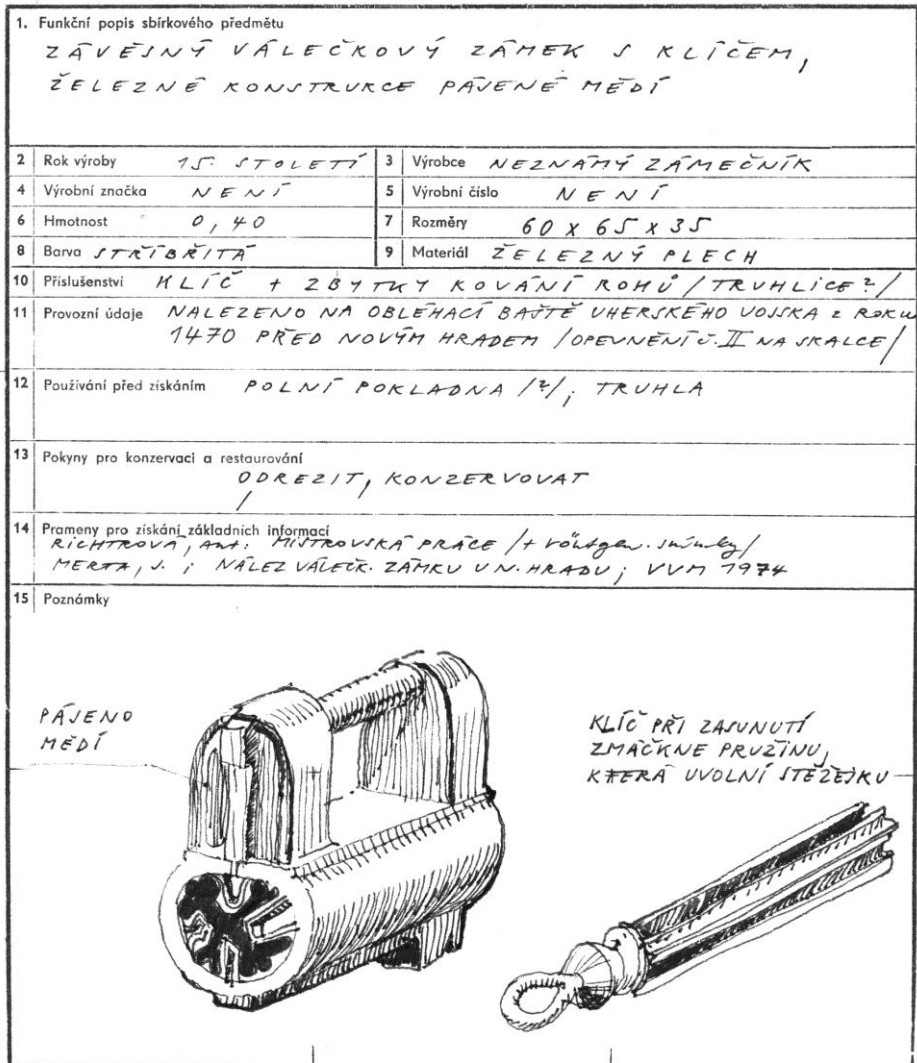 1. Funkční popis sbírkového předmětu
ZÁVĚSNÝ VÁLEČKOVÝ ZÁMEK S KLÍČEM,
ŽELEZNÉ KONSTRUKCE PÁJENÉ MĚDÍ
2 Rok výroby 15. STOLETÍ 3 Výrobce NEZNÁMÝ ZÁMEČNÍK
4 Výrobní značka NENÍ 5 Výrobní číslo NENÍ
6 Hmotnost 0,40 7 Rozměry 60 x 65 x 35
8 Barva STŘÍBŘITÁ 9 Materiál ŽELEZNÝ PLECH
10 Příslušenství KLÍČ + ZBYTKY KOVÁNÍ ROHŮ /TRUHLICE?/
11 Provozní údaje NALEZENO NA OBLÉHACÍ BAŠTĚ UHERSKÉHO VOJSKA z ROKU
1470 PŘED NOVÝM HRADEM /OPEVNĚNÍ č. II NA SKALCE/
12 Používání před získáním POLNÍ POKLADNA /?/; TRUHLA
13 Pokyny pro konzervaci a restaurování
ODREZIT, KONZERVOVAT
14 Prameny pro získání základních informací
RICHTROVÁ, Ant: MISTROVSKÁ PRÁCE /+ röntgen. snímky/
MERTA, J. ; NÁLEZ VÁLEČK. ZÁMKU U N. HRADU; VVM 1974
15 Poznámky
PÁJENO
MĚDÍ
KLÍČ PŘI ZASUNUTÍ
ZMÁČKNE PRUŽINU,
KTERÁ UVOLNÍ STĚŽEJKU